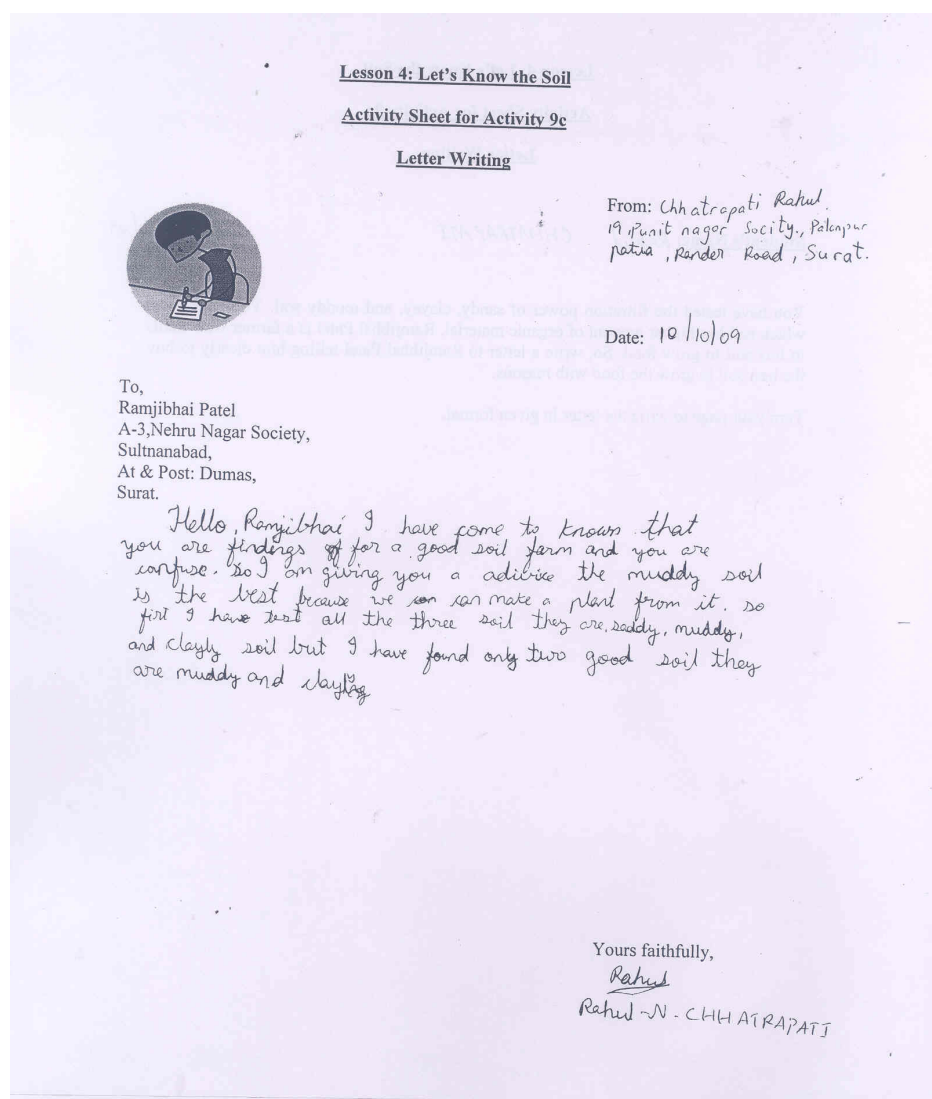 Lesson 4: Let's Know the Soil
Activity Sheet for Activity 9c
Letter Writing
From: Chhatrapati Rahul.
19, Punit nagar Socity., Palanpur
patia, Rander Road, Surat.
Date: 10/10/09
To,
Ramjibhai Patel
A-3,Nehru Nagar Society,
Sultnanabad,
At & Post: Dumas,
Surat.
Hello, Ramjibhai I have come to known that
you are findings for a good soil farm and you are
confuse. So I am giving you a adivice the muddy soil
is the best because we can make a plant from it. so
first I have test all the three soil they are, saddy, muddy,
and clayly soil but I have found only two good soil they
are muddy and
Yours faithfully,
Rahul
Rahul -N- CHHATRAPATI